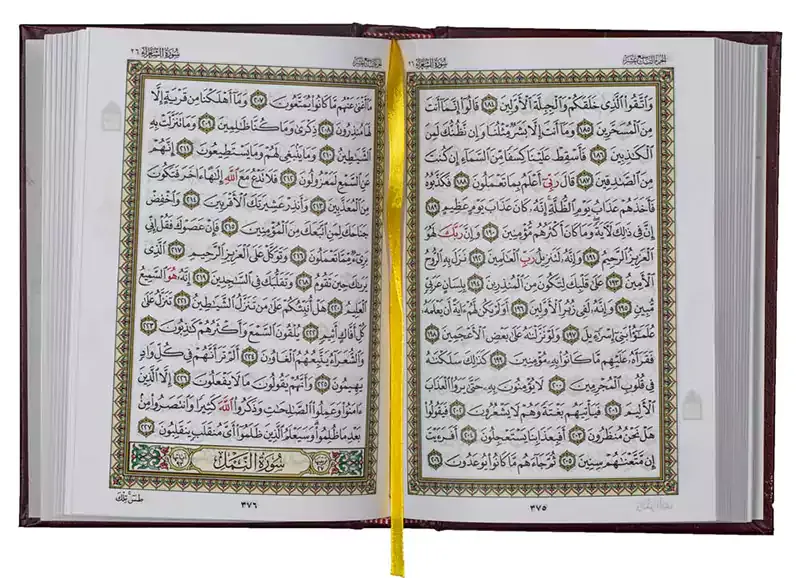 الجزء التاسع عشر
سُورَةُ الشُّعَرَاءِ ٢٦
وَٱتَّقُوا۟ ٱلَّذِى خَلَقَكُمْ وَٱلْجِبِلَّةَ ٱلْأَوَّلِينَ ١٨٤ قَالُوٓا۟ إِنَّمَآ أَنتَ
مِنَ ٱلْمُسَحَّرِينَ ١٨٥ وَمَآ أَنتَ إِلَّا بَشَرٌ مِّثْلُنَا وَإِن نَّظُنُّكَ لَمِنَ
ٱلْكَٰذِبِينَ ١٨٦ فَأَسْقِطْ عَلَيْنَا كِسَفًا مِّنَ ٱلسَّمَآءِ إِن كُنتَ
مِنَ ٱلصَّٰدِقِينَ ١٨٧ قَالَ رَبِّىٓ أَعْلَمُ بِمَا تَعْمَلُونَ ١٨٨ فَكَذَّبُوهُ
فَأَخَذَهُمْ عَذَابُ يَوْمِ ٱلظُّلَّةِ إِنَّهُۥ كَانَ عَذَابَ يَوْمٍ عَظِيمٍ ١٨٩
إِنَّ فِى ذَٰلِكَ لَءَايَةً وَمَا كَانَ أَكْثَرُهُم مُّؤْمِنِينَ ١٩٠ وَإِنَّ رَبَّكَ لَهُوَ
ٱلْعَزِيزُ ٱلرَّحِيمُ ١٩١ وَإِنَّهُۥ لَتَنزِيلُ رَبِّ ٱلْعَٰلَمِينَ ١٩٢ نَزَلَ بِهِ ٱلرُّوحُ
ٱلْأَمِينُ ١٩٣ عَلَىٰ قَلْبِكَ لِتَكُونَ مِنَ ٱلْمُنذِرِينَ ١٩٤ بِلِسَانٍ عَرَبِىٍّ
مُّبِينٍ ١٩٥ وَإِنَّهُۥ لَفِى زُبُرِ ٱلْأَوَّلِينَ ١٩٦ أَوَلَمْ يَكُن لَّهُمْ ءَايَةً أَن يَعْلَمَهُۥ
عُلَمَٰٓؤُا۟ بَنِىٓ إِسْرَٰٓءِيلَ ١٩٧ وَلَوْ نَزَّلْنَٰهُ عَلَىٰ بَعْضِ ٱلْأَعْجَمِينَ ١٩٨
فَقَرَأَهُۥ عَلَيْهِم مَّا كَانُوا۟ بِهِۦ مُؤْمِنِينَ ١٩٩ كَذَٰلِكَ سَلَكْنَٰهُ
فِى قُلُوبِ ٱلْمُجْرِمِينَ ٢٠٠ لَا يُؤْمِنُونَ بِهِۦ حَتَّىٰ يَرَوُا۟ ٱلْعَذَابَ
ٱلْأَلِيمَ ٢٠١ فَيَأْتِيَهُم بَغْتَةً وَهُمْ لَا يَشْعُرُونَ ٢٠٢ فَيَقُولُوا۟
هَلْ نَحْنُ مُنظَرُونَ ٢٠٣ أَفَبِعَذَابِنَا يَسْتَعْجِلُونَ ٢٠٤ أَفَرَءَيْتَ
إِن مَّتَّعْنَٰهُمْ سِنِينَ ٢٠٥ ثُمَّ جَآءَهُم مَّا كَانُوا۟ يُوعَدُونَ ٢٠٦
٣٧٥
الجزء التاسع عشر
سُورَةُ الشُّعَرَاءِ ٢٦
مَآ أَغْنَىٰ عَنْهُم مَّا كَانُوا۟ يُمَتَّعُونَ ٢٠٧ وَمَآ أَهْلَكْنَا مِن قَرْيَةٍ إِلَّا
لَهَا مُنذِرُونَ ٢٠٨ ذِكْرَىٰ وَمَا كُنَّا ظَٰلِمِينَ ٢٠٩ وَمَا تَنَزَّلَتْ بِهِ
ٱلشَّيَٰطِينُ ٢١٠ وَمَا يَنۢبَغِى لَهُمْ وَمَا يَسْتَطِيعُونَ ٢١١ إِنَّهُمْ
عَنِ ٱلسَّمْعِ لَمَعْزُولُونَ ٢١٢ فَلَا تَدْعُ مَعَ ٱللَّهِ إِلَٰهًا ءَاخَرَ فَتَكُونَ
مِنَ ٱلْمُعَذَّبِينَ ٢١٣ وَأَنذِرْ عَشِيرَتَكَ ٱلْأَقْرَبِينَ ٢١٤ وَٱخْفِضْ
جَنَاحَكَ لِمَنِ ٱتَّبَعَكَ مِنَ ٱلْمُؤْمِنِينَ ٢١٥ فَإِنْ عَصَوْكَ فَقُلْ إِنِّى
بَرِىٓءٌ مِّمَّا تَعْمَلُونَ ٢١٦ وَتَوَكَّلْ عَلَى ٱلْعَزِيزِ ٱلرَّحِيمِ ٢١٧ ٱلَّذِى
يَرَىٰكَ حِينَ تَقُومُ ٢١٨ وَتَقَلُّبَكَ فِى ٱلسَّٰجِدِينَ ٢١٩ إِنَّهُۥ هُوَ ٱلسَّمِيعُ
ٱلْعَلِيمُ ٢٢٠ هَلْ أُنَبِّئُكُمْ عَلَىٰ مَن تَنَزَّلُ ٱلشَّيَٰطِينُ ٢٢١ تَنَزَّلُ عَلَىٰ
كُلِّ أَفَّاكٍ أَثِيمٍ ٢٢٢ يُلْقُونَ ٱلسَّمْعَ وَأَكْثَرُهُمْ كَٰذِبُونَ ٢٢٣
وَٱلشُّعَرَآءُ يَتَّبِعُهُمُ ٱلْغَاوُۥنَ ٢٢٤ أَلَمْ تَرَ أَنَّهُمْ فِى كُلِّ وَادٍ
يَهِيمُونَ ٢٢٥ وَأَنَّهُمْ يَقُولُونَ مَا لَا يَفْعَلُونَ ٢٢٦ إِلَّا ٱلَّذِينَ
ءَامَنُوا۟ وَعَمِلُوا۟ ٱلصَّٰلِحَٰتِ وَذَكَرُوا۟ ٱللَّهَ كَثِيرًا وَٱنتَصَرُوا۟ مِنۢ
بَعْدِ مَا ظُلِمُوا۟ وَسَيَعْلَمُ ٱلَّذِينَ ظَلَمُوٓا۟ أَىَّ مُنقَلَبٍ يَنقَلِبُونَ ٢٢٧
سُورَةُ النَّمْلِ
٣٧٦
طسٓ تِلْكَ